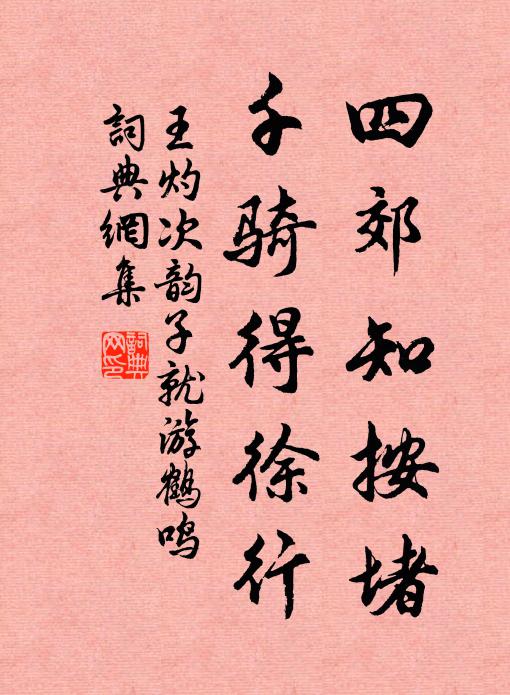 四郊知按堵
千骑得徐行
王灼次韵子就游鹤鸣
詞典網集
詞典
网印